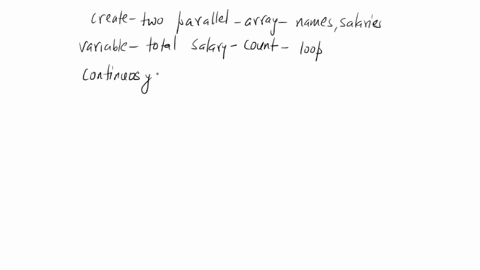 create - two parallel - array - names, salaries
variable - total salary - count - loop
continuosy.